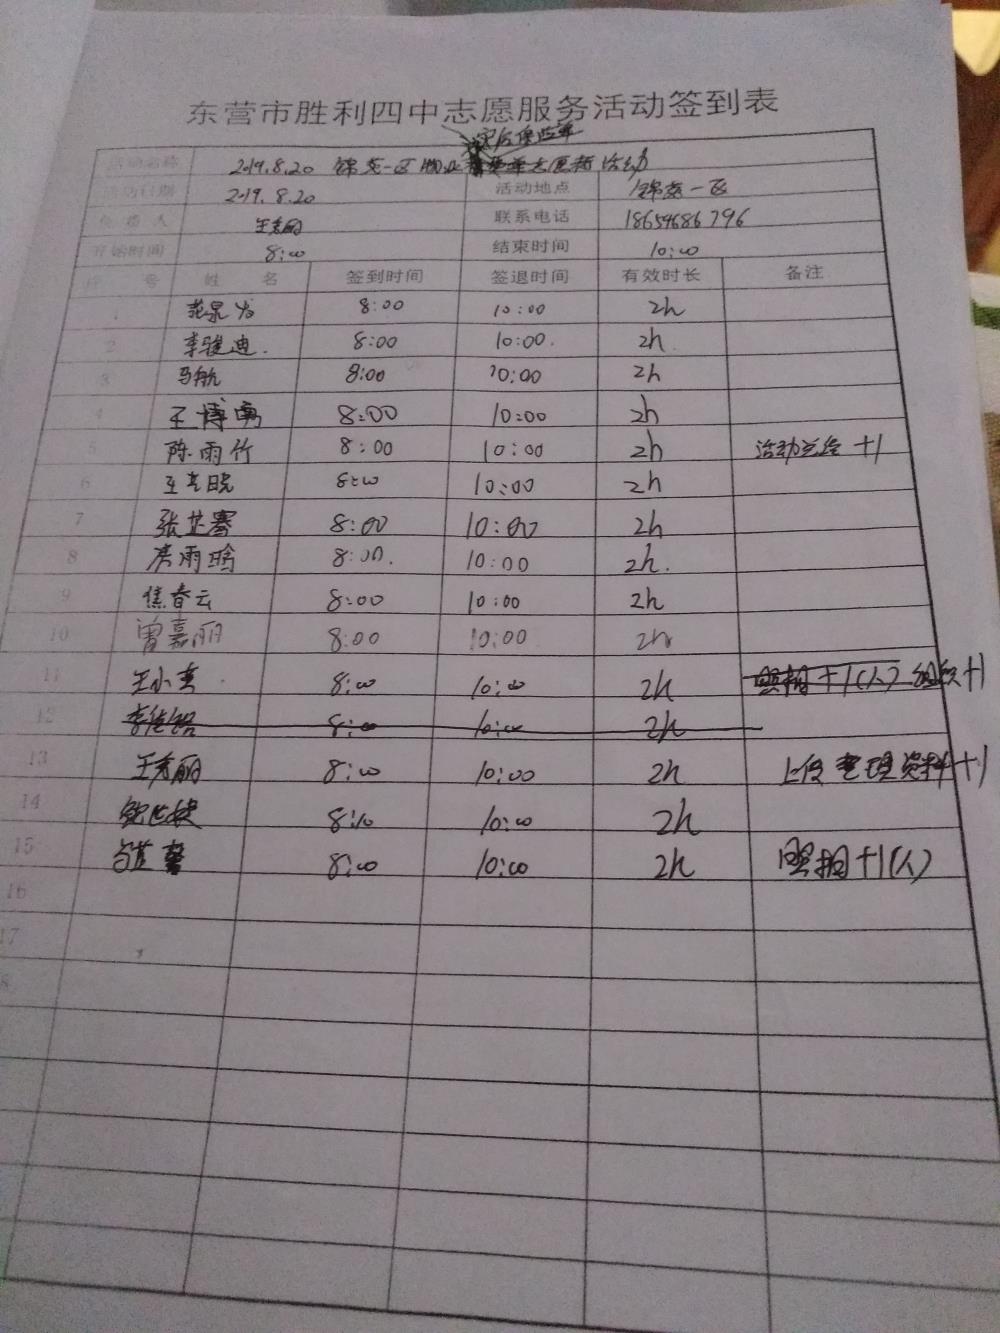 东营市胜利四中志愿服务活动签到表
活动名称 2019.8.20 锦苑一区物业 志愿者活动
活动日期 2019.8.20 活动地点 锦苑一区
负责人 王秀丽 联系电话 18659686796
开始时间 8:00 结束时间 10:00
序号 姓名 签到时间 签退时间 有效时长 备注
1 8:00 10:00 2h
2 李骏迪. 8:00 10:00. 2h.
3 马航 8:00 10:00 2h
4 王博 8:00 10:00 2h
5 陈雨竹 8:00 10:00 2h 活动总结 +1
6 王 晓 8:00 10:00 2h
7 张芷骞 8:00 10:00 2h
8 房雨晗 8:00. 10:00 2h.
9 焦春云 8:00 10:00 2h
10 曾嘉丽 8:00 10:00 2h
11 王小 8:00 10:00 2h 照相+1(人) 组织+1
12 8:00 10:00 2h
13 王秀丽 8:00 10:00 2h 上传整理资料+1
14 8:10 10:00 2h
15 8:00 10:00 2h 照相+1(人)
16
17